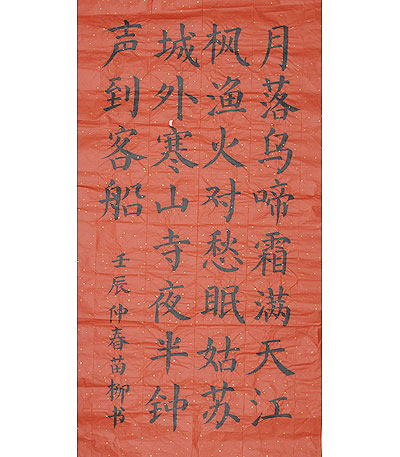 月落乌啼霜满天江
枫渔火对愁眠姑苏
城外寒山寺夜半钟
声到客船
壬辰仲春苗柳书